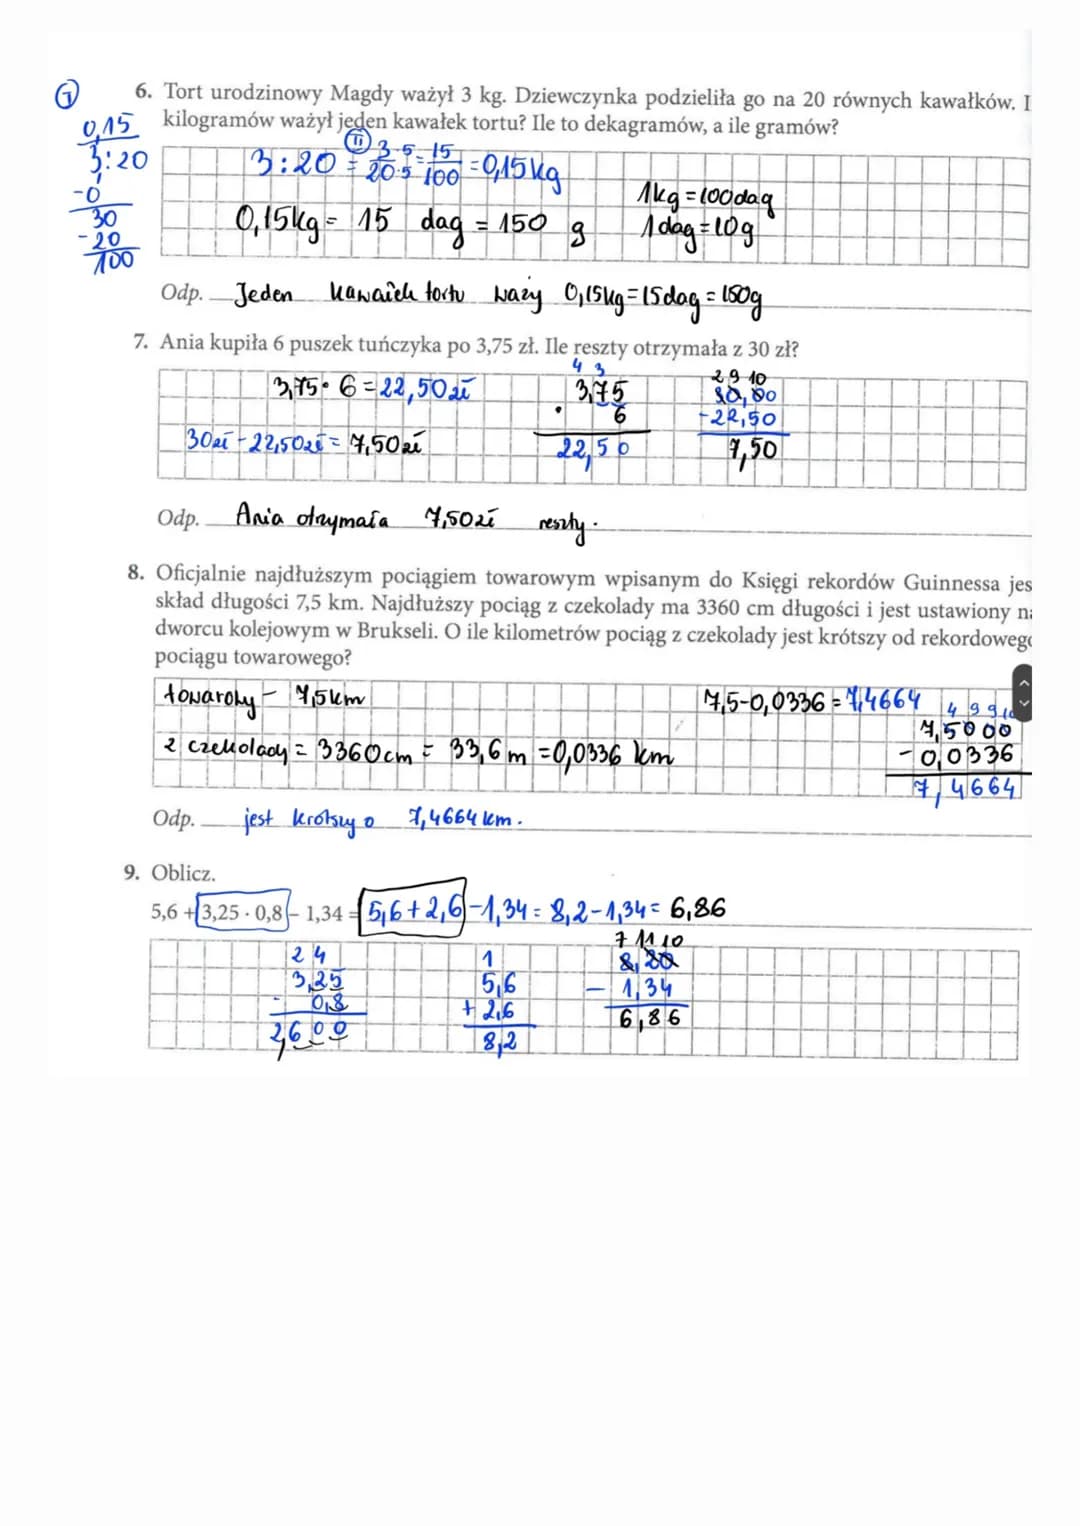 I
6. Tort urodzinowy Magdy ważył 3 kg. Dziewczynka podzieliła go na 20 równych kawałków. I
kilogramów ważył jeden kawałek tortu? Ile to dekagramów, a ile gramów?
0,15
3:20
-0
30
-20
100
II
3:20 = 3·5/20·5 = 15/100 = 0,15kg
1kg = 100dag
0,15kg = 15 dag = 150 g
1dag = 10g
Odp. Jeden kawałek tortu waży 0,15kg = 15dag = 150g
7. Ania kupiła 6 puszek tuńczyka po 3,75 zł. Ile reszty otrzymała z 30 zł?
3,75 · 6 = 22,50zł
30zł - 22,50zł = 7,50zł
4 3
3,75
· 6
22,50
2 9 10
30,00
-22,50
7,50
Odp. Ania otrzymała 7,50zł reszty.
8. Oficjalnie najdłuższym pociągiem towarowym wpisanym do Księgi rekordów Guinnessa jes
skład długości 7,5 km. Najdłuższy pociąg z czekolady ma 3360 cm długości i jest ustawiony na
dworcu kolejowym w Brukseli. O ile kilometrów pociąg z czekolady jest krótszy od rekordowego
pociągu towarowego?
towarowy - 7,5km
z czekolady = 3360cm = 33,6m = 0,0336 km
7,5-0,0336 = 7,4664
4 9 9 10
7,5000
- 0,0336
7,4664
Odp. jest krótszy o 7,4664 km.
9. Oblicz.
5,6 + 3,25 · 0,8 – 1,34 = 5,6+2,6 -1,34 = 8,2-1,34 = 6,86
2 4
3,25
· 0,8
2,600
1
5,6
+ 2,6
8,2
7 11 10
8,20
- 1,34
6,86